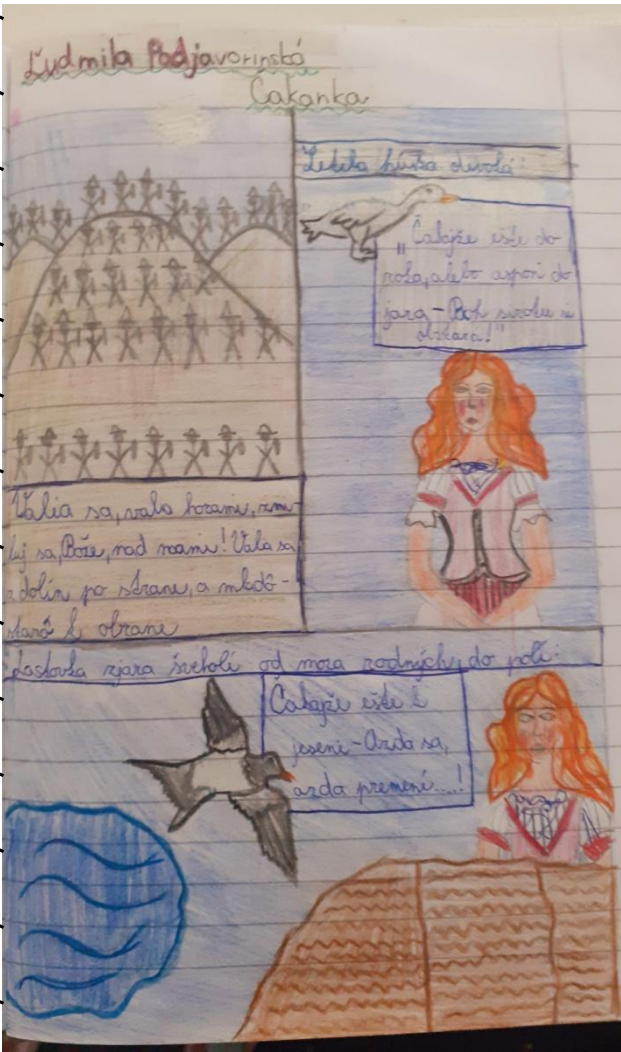 Ľudmila Podjavorinská
Čakanka
Letela husa divolá:
„Čakajže ešte do
roka, alebo aspoň do
jara – Boh svoolu si
Valia sa, valia horami, zmi-
luj sa, Bože, nad nami! Valia sa
z dolín po strane, a mladô-
staro k obrane
Lastovka zjara šveholí od mora rodných do polí:
Čakajže ešte k
jeseni – Azda sa,
azda premení....!